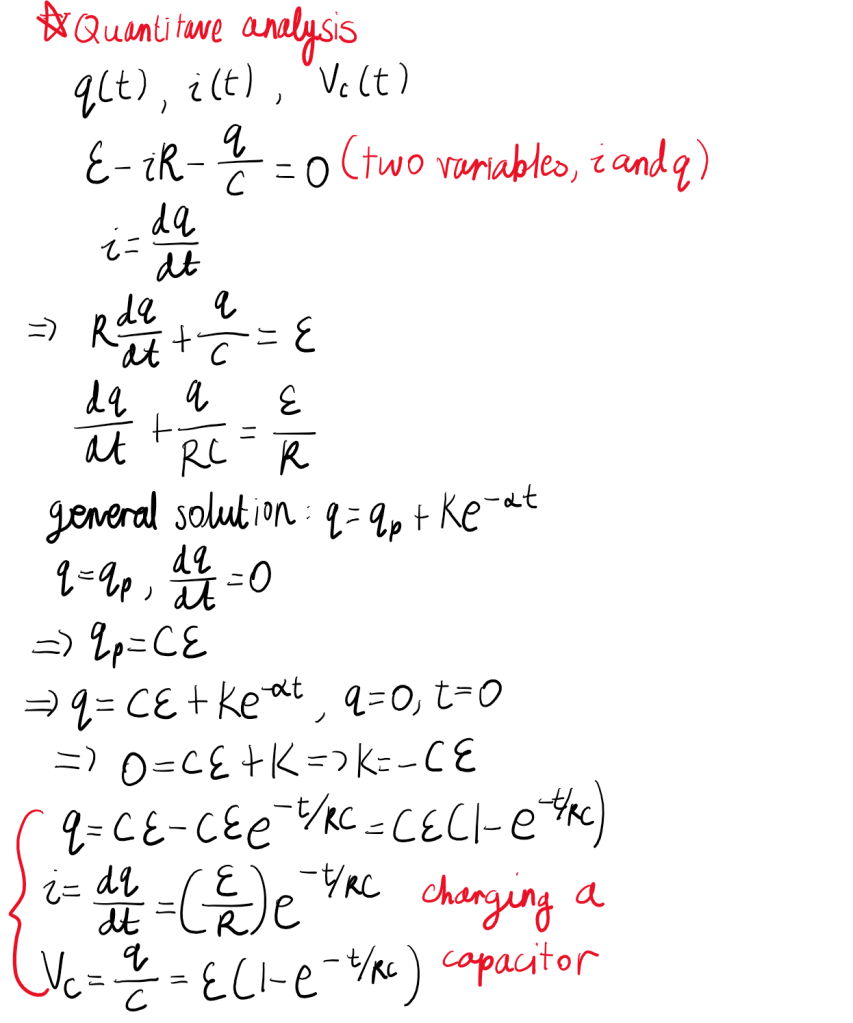 ☆Quantitave analysis
q(t), i(t), Vc(t)
ℰ-iR-q/C=0 (two variables, i and q)
i=dq/dt
=> R dq/dt + q/C = ℰ
dq/dt + q/RC = ℰ/R
general solution: q=qₚ+Ke^(-αt)
q=qₚ, dq/dt=0
=> qₚ=Cℰ
=> q=Cℰ+Ke^(-αt), q=0, t=0
=> 0=Cℰ+K=>K=-Cℰ
q=Cℰ-Cℰe^(-t/RC)=Cℰ(1-e^(-t/RC))
i=dq/dt=(ℰ/R)e^(-t/RC) charging a
Vc=q/C=ℰ(1-e^(-t/RC)) capacitor